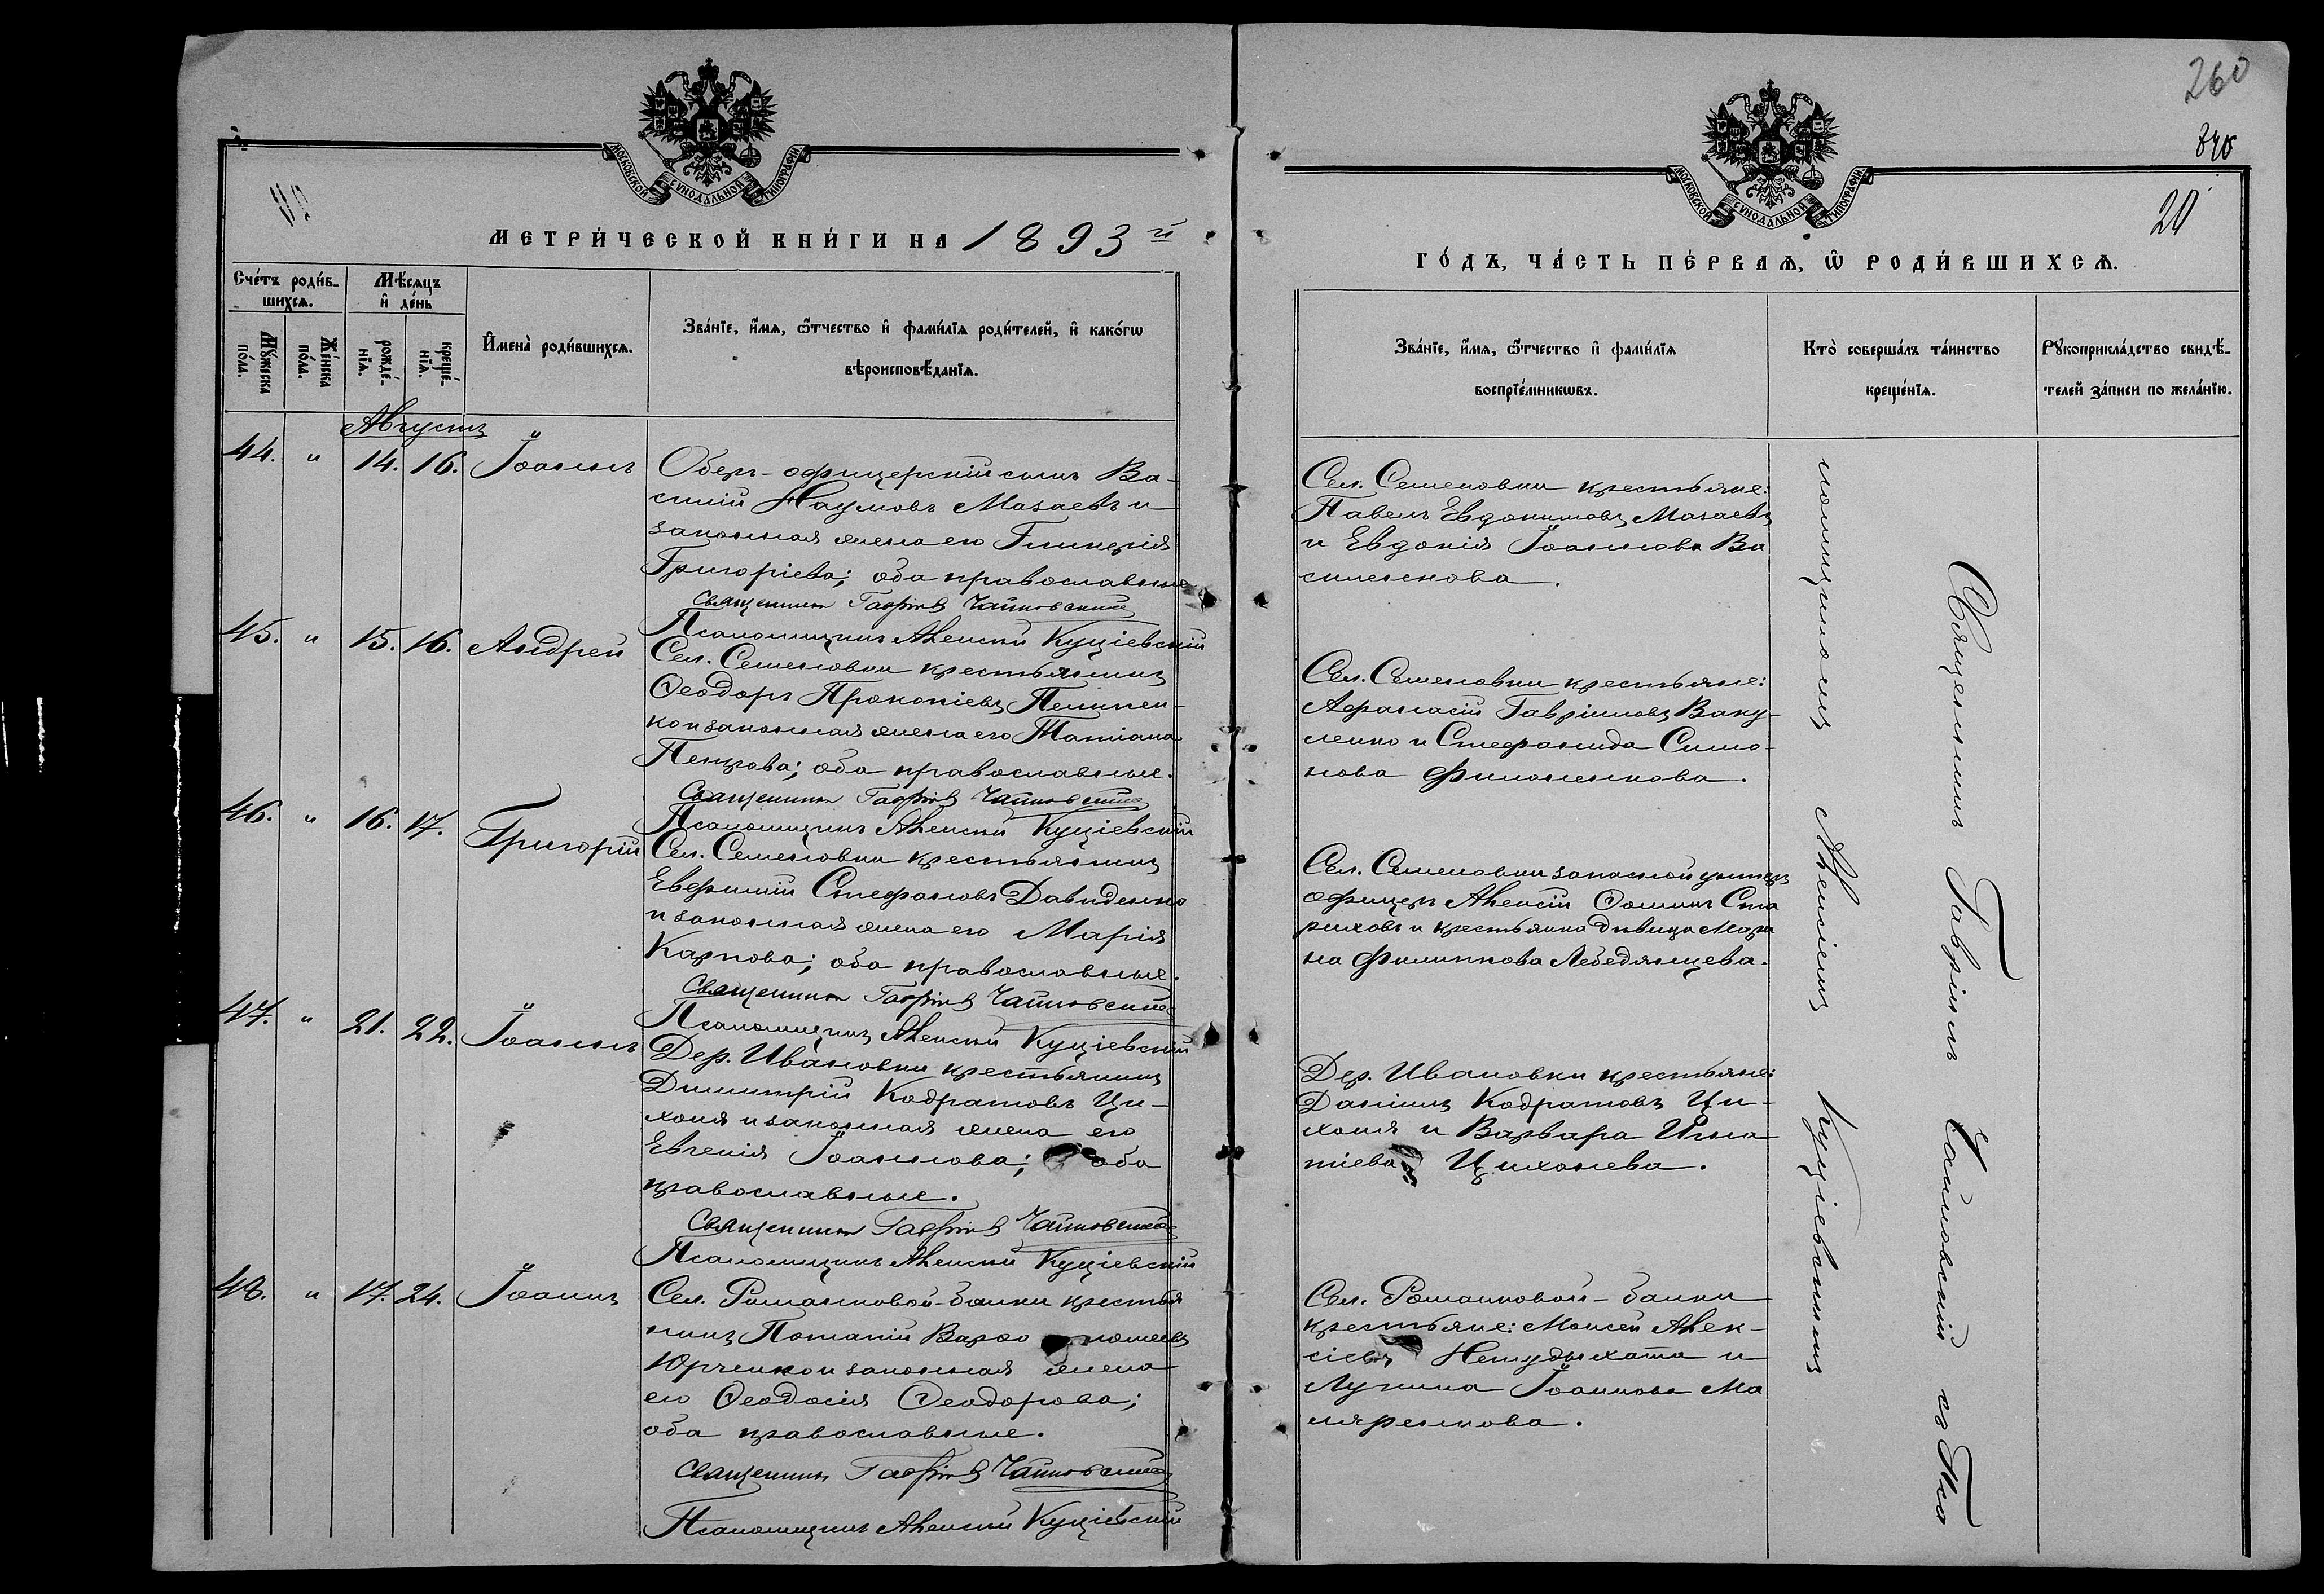 260
840
20
МОСКОВСКОЙ СѴНОДАЛЬНОЙ ТИПОГРАФІИ
МОСКОВСКОЙ СѴНОДАЛЬНОЙ ТИПОГРАФІИ
МЕТРИ́ЧЕСКОЙ КНИ́ГИ НА 1893й
ГО́ДЪ, ЧА́СТЬ ПЕ́РВАѦ, Ѡ҆ РОДИ́ВШИХСѦ.
Сче́тъ роди́в-
шихсѧ.
Мѣ́сѧцъ
и҆ де́нь
Мꙋ́жеска
по́ла.
Же́нска
по́ла.
рожде́-
нїѧ.
креще́-
нїѧ.
И҆мена̀ роди́вшихсѧ.
Зва́нїе, и҆́мѧ, ѻ҆́тчество и҆ фами́лїѧ роди́телей, и҆ како́гѡ
вѣроисповѣ́данїѧ.
Зва́нїе, и҆́мѧ, ѻ҆́тчество и҆ фами́лїѧ
воспрїе́мникѡвъ.
Кто̀ соверша́лъ та́инство
креще́нїѧ.
Рꙋкоприкла́дство свидѣ́-
телей за́писи по жела́нїю.
Августъ
44. " 14. 16. Іоаннъ
Оберъ-офицерскій сынъ Ва-
силій Наумовъ Мазаевъ и
законная жена его Гликерія
Григоріева; оба православные
Священникъ Гавріилъ Чайковскій
Псаломщикъ Алексій Куціевскій
Сел. Семеновки крестьяне:
Павелъ Евдокимовъ Мазаевъ
и Евдокія Іоаннова Ва
силенкова.
45. " 15. 16. Андрей
Сел. Семеновки крестьянинъ
Ѳеодоръ Прокопіевъ Пелипен-
ко и законная жена его Татіана
Петрова; оба православные.
Священникъ Гавріилъ Чайковскій
Псаломщикъ Алексій Куціевскій
Сел. Семеновки крестьяне:
Афанасій Гавріиловъ Ваку-
ленко и Стефанида Симо-
нова Филоненкова.
46. " 16. 17. Григорій
Сел. Семеновки крестьянинъ
Евфимій Стефановъ Давиденко
и законная жена его Марія
Карпова; оба православные.
Священникъ Гавріилъ Чайковскій
Псаломщикъ Алексій Куціевскій
Сел. Семеновки запасной унтеръ
офицеръ Алексій Ѳоминъ Ста
риковъ и крестьянка дѣвица Мари
на Филиппова Лебедянцева.
47. " 21. 22. Іоаннъ
Дер. Ивановки крестьянинъ
Димитрій Кодратовъ Ци-
хоня и законная жена его
Евгенія Іоаннова; оба
православные.
Священникъ Гавріилъ Чайковскій
Псаломщикъ Алексій Куціевскій
Дер. Ивановки крестьяне:
Даніилъ Кодратовъ Ци-
хоня и Варвара Игна
тіева Цихонева.
48. " 17. 24. Іоаннъ
Сел. Романковой-балки крестья
нинъ Потапій Варфоломеевъ
Юрченко и законная жена
его Ѳеодосія Ѳеодорова;
оба православные.
Священникъ Гавріилъ Чайковскій
Псаломщикъ Алексій Куціевскій
Сел. Романковой-балки
крестьяне: Моисей Алек-
сіевъ Нетудыхата и
Лукина Іоаннова Ма
ляренкова.
Священникъ Гавріилъ Чайковскій съ Пса
ломщикомъ Алексіемъ Куціевскимъ